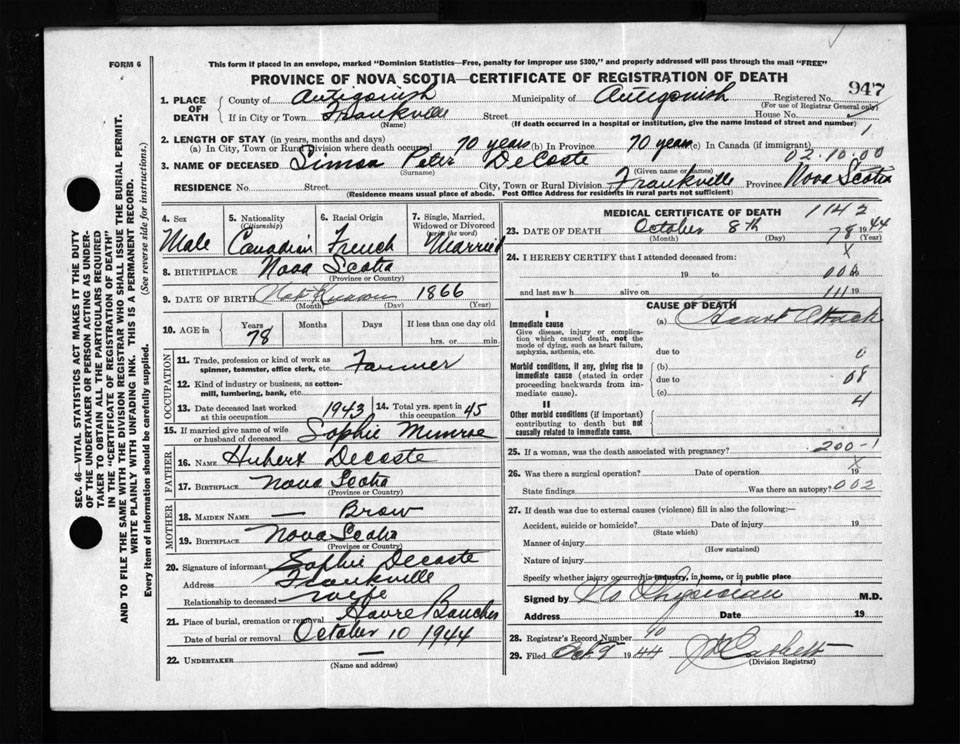 FORM 6
This form if placed in an envelope, marked "Dominion Statistics—Free, penalty for improper use $300," and properly addressed will pass through the mail "FREE"
PROVINCE OF NOVA SCOTIA—CERTIFICATE OF REGISTRATION OF DEATH
947
1. PLACE OF DEATH
County of Antigonish Municipality of Antigonish Registered No.
(For use of Registrar General only)
If in City or Town Frankville Street House No.
(Name) (If death occurred in a hospital or institution, give the name instead of street and number)
2. LENGTH OF STAY (in years, months and days)
(a) In City, Town or Rural Division where death occurred 70 years (b) In Province 70 years (c) In Canada (if immigrant)
02.10.00
3. NAME OF DECEASED Simon Peter DeCoste
(Surname) (Given name or names)
RESIDENCE No. Street City, Town or Rural Division Frankville Province Nova Scotia
(Residence means usual place of abode. Post Office Address for residents in rural parts not sufficient)
4. Sex Male
5. Nationality (Citizenship) Canadian
6. Racial Origin French
7. Single, Married, Widowed or Divorced (write the word) Married
8. BIRTHPLACE Nova Scotia
(Province or Country)
9. DATE OF BIRTH Not Known 1866
(Month) (Day) (Year)
10. AGE in Years Months Days If less than one day old
78 hrs. or min.
OCCUPATION
11. Trade, profession or kind of work as spinner, teamster, office clerk, etc. Farmer
12. Kind of industry or business, as cotton-mill, lumbering, bank, etc.
13. Date deceased last worked at this occupation 1943
14. Total yrs. spent in this occupation 45
15. If married give name of wife or husband of deceased Sophie Munroe
FATHER
16. NAME Hubert Decoste
17. BIRTHPLACE Nova Scotia
(Province or Country)
MOTHER
18. MAIDEN NAME — Brow
19. BIRTHPLACE Nova Scotia
(Province or Country)
20. Signature of informant Sophie Decoste
Address Frankville
Relationship to deceased wife
21. Place of burial, cremation or removal Havre Boucher
Date of burial or removal October 10 1944
22. UNDERTAKER —
(Name and address)
MEDICAL CERTIFICATE OF DEATH 1142
23. DATE OF DEATH October 8th 1944
(Month) (Day) (Year)
78
24. I HEREBY CERTIFY that I attended deceased from:
X
19 to 19
last saw h alive on 19
CAUSE OF DEATH
I
Immediate cause (a) Heart Attack
Give disease, injury or complication which caused death, not the mode of dying, such as heart failure, asphyxia, asthenia, etc. due to
Morbid conditions, if any, giving rise to immediate cause (stated in order proceeding backwards from immediate cause). (b)
due to 08
(c) 4
II
Other morbid conditions (if important) contributing to death but not causally related to immediate cause.
25. If a woman, was the death associated with pregnancy? 200-1
X
26. Was there a surgical operation? Date of operation 19
State findings Was there an autopsy? 002
27. If death was due to external causes (violence) fill in also the following:—
Accident, suicide or homicide? Date of injury 19
(State which)
Manner of injury
(How sustained)
Nature of injury
Specify whether injury occurred in industry, in home, or in public place
Signed by No Physician M.D.
Address Date 19
28. Registrar's Record Number 90
29. Filed Oct 9 1944
(Division Registrar)
SEC. 46—VITAL STATISTICS ACT MAKES IT THE DUTY
OF THE UNDERTAKER OR PERSON ACTING AS UNDER-
TAKER TO OBTAIN ALL THE PARTICULARS REQUIRED
IN THE "CERTIFICATE OF REGISTRATION OF DEATH"
AND TO FILE THE SAME WITH THE DIVISION REGISTRAR WHO SHALL ISSUE THE BURIAL PERMIT.
WRITE PLAINLY WITH UNFADING INK. THIS IS A PERMANENT RECORD.
Every item of information should be carefully supplied. (See reverse side for instructions.)